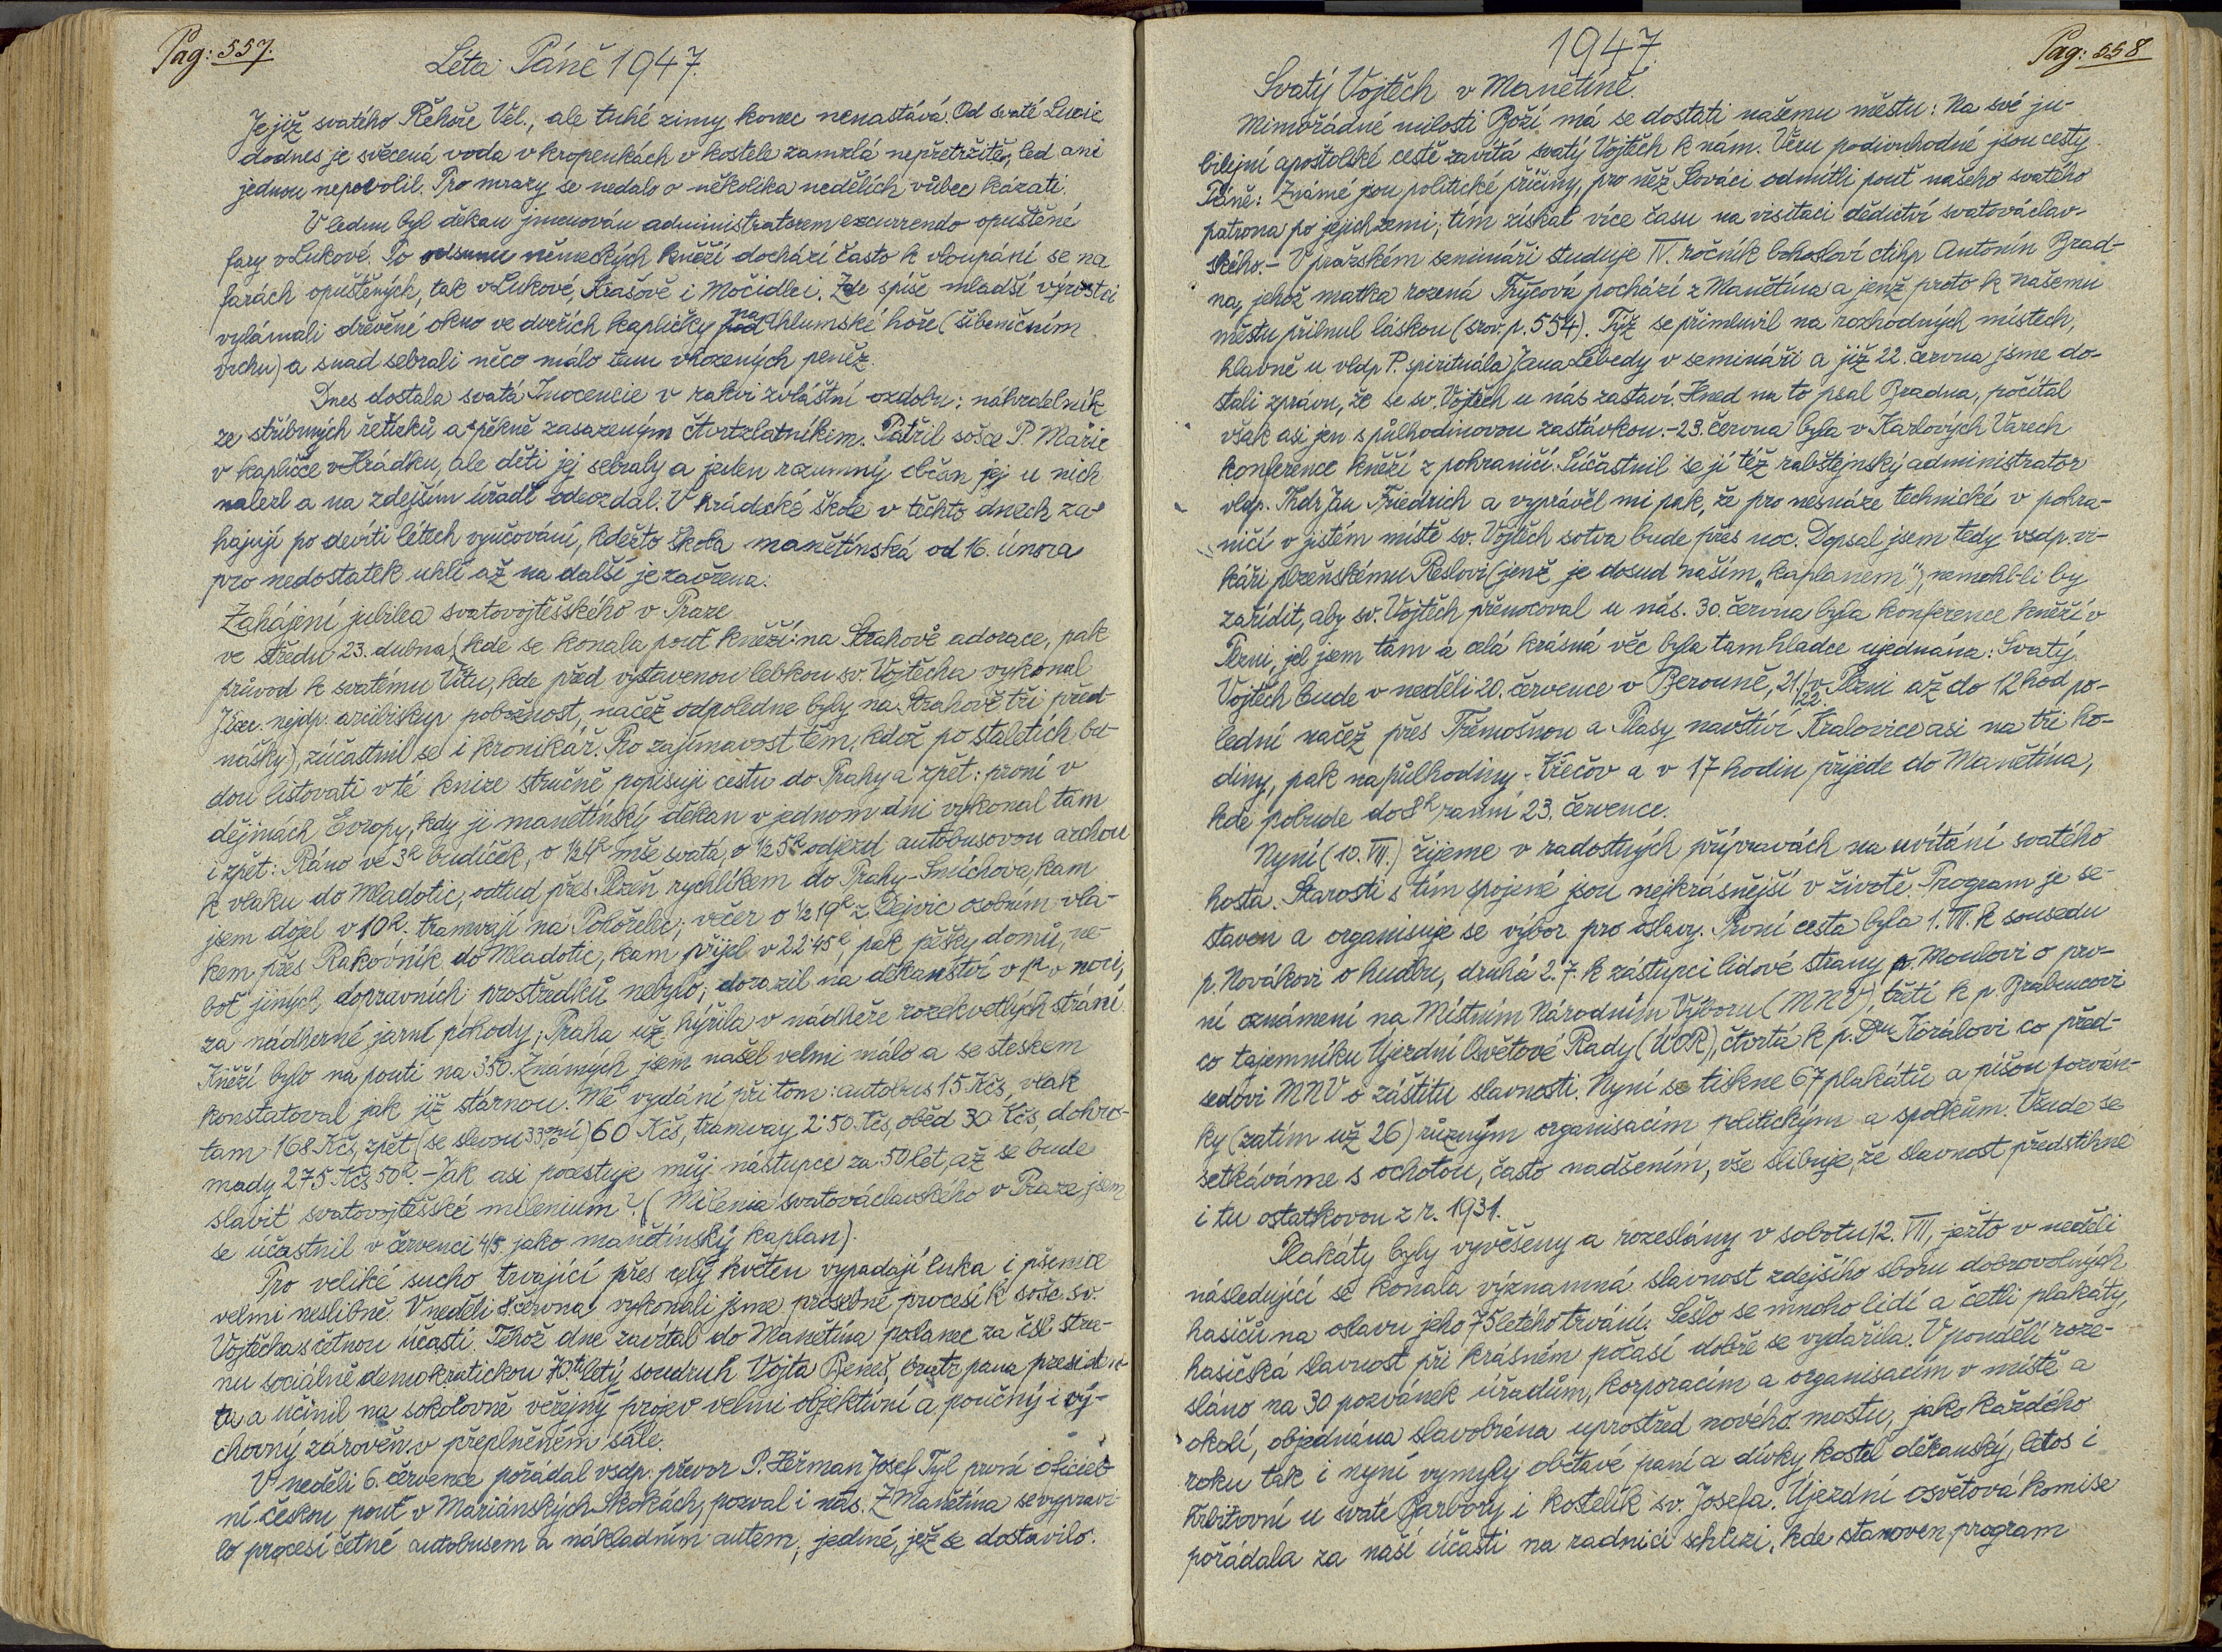 Pag: 557.
Léta Páně 1947.
Je již svatého Řehoře Vel., ale tuhé zimy konec nenastává. Od svaté Lucie
dodnes je svěcená voda v kropenkách v kostele zamrzlá nepřetržitě, led ani
jednou nepovolil. Pro mrazy se nedalo o několika nedělích vůbec kázati.
V lednu byl děkan jmenován administratorem excurrendo opuštěné
fary v Lukové. Po odsunu německých kněží dochází často k vloupání se na
farách opuštěných, tak v Lukové, Krašově i Močidlci. Zde spíše mladší výrostci
vylámali dřevěné okno ve dveřích kapličky na Chlumské hoře (šibeničním
vrchu) a snad sebrali něco málo tam vhozených peněz.
Dnes dostala svatá Inocencie v rakvi zvláštní ozdobu: náhrdelník
ze stříbrných řetízků a pěkně zasazeným čtvrtzlatníkem. Patřil sošce P. Marie
v kapličce v Hrádku, ale děti jej sebraly a jeden rozumný občan jej u nich
nalezl a na zdejším úřadě odevzdal. V hrádecké škole v těchto dnech za-
hajují po devíti létech vyučování, kdežto škola manětínská od 16. února
pro nedostatek uhlí až na další je zavřena.
Zahájení jubilea svatovojtěšského v Praze
ve středu 23. dubna, (kde se konala pouť kněží: na Strahově adorace, pak
průvod k svatému Vítu, kde před vystavenou lebkou sv. Vojtěcha vykonal
J. Exc. nejdp. arcibiskup pobožnost, načež odpoledne byly na Strahově tři před-
nášky), zúčastnil se i kronikář. Pro zajímavost těm, kdož po staletích bu-
dou listovati v té knize stručně popisuji cestu do Prahy a zpět: první v
dějinách Evropy, kdy ji manětínský děkan v jednom dni vykonal tam
i zpět: Ráno ve 3h budíček, o ½4h mše svatá, o ½5h odjezd autobusovou archou
k vlaku do Mladotic, odtud přes Plzeň rychlíkem do Prahy-Smíchova, kam
jsem dojel v 10h. tramvají na Pohořelec; večer o ½19h z Dejvic osobním vla-
kem přes Rakovník do Mladotic, kam přijel v 22'45h, pak pěšky domů, ne-
boť jiných dopravních prostředků nebylo; dorazil na děkanství v 1h v noci,
za nádherné jarní pohody; Praha už hýřila v nádheře rozekvetlých strání.
Kněží bylo na pouti na 350. Známých jsem našel velmi málo a se steskem
konstatoval jak již stárnou. Mé vydání při tom: autobus 15 Kčs, vlak
tam 168 Kčs, zpět (se slevou 33%ní) 60 Kčs, tramvay 2'50 Kčs, oběd 30 Kčs, dohro-
mady 275 Kčs 50h. - Jak asi pocestuje můj nástupce za 50 let, až se bude
slavit svatovojtěšské milenium? (Milenia svatováclavského v Praze jsem
se účastnil v červenci 4/5. jako manětínský kaplan).
Pro veliké sucho trvající přes celý květen vypadají luka i pšenice
velmi neslibně. V neděli 8. června vykonali jsme prosebné procesí k soše sv.
Vojtěcha s četnou účastí. Téhož dne zavítal do Manětína poslanec za čsl stra-
nu sociálně demokratickou 70tiletý soudruh Vojta Beneš, bratr pana presiden-
ta a učinil na sokolovně veřejný projev velmi objektivní a poučný i vý-
chovný zároveň v přeplněném sále.
V neděli 6. července pořádal vsdp. převor P. Heřman Josef Tyl první oficiel-
ní českou pouť v Mariánských Skokách, pozval i nás. Z Manětína se vypravi-
lo procesí četné autobusem a nákladním autem, jediné, jež se dostavilo.
1947.
Pag: 558
Svatý Vojtěch v Manětíně.
Mimořádné milosti Boží má se dostati našemu městu: Na své ju-
bilejní apoštolské cestě zavítá svatý Vojtěch k nám. Věru podivuhodné jsou cesty
Páně: Známé jsou politické příčiny, pro něž Slováci odmítli pouť našeho svatého
patrona po jejich zemi; tím získal více času na visitaci dědictví svatováclav-
ského. - V pražském semináři studuje IV. ročník bohosloví ctihp Antonín Brad-
na, jehož matka rozená Trýcová pochází z Manětína a jenž proto k našemu
městu přilnul láskou (srov. p. 554). Týž se přimluvil na rozhodných místech,
hlavně u vldp P. spirituála Jana Lebedy v semináři a již 22. června jsme do-
stali zprávu, že se sv. Vojtěch u nás zastaví. Hned na to psal Bradna, počítal
však asi jen s půlhodinovou zastávkou. - 23. června byla v Karlových Varech
konference kněží z pohraničí. Súčastnil se jí též rabštejnský administrator
vldp. ThDr Jan Friedrich a vyprávěl mi pak, že pro nesnáze technické v pohra-
ničí v jistém místě sv. Vojtěch sotva bude přes noc. Dopsal jsem tedy vsdp. vi-
káři plzeňskému Reslovi (jenž je dosud naším „kaplanem"), nemohl-li by
zařídit, aby sv. Vojtěch přenocoval u nás. 30. června byla konference kněží v
Plzni, jel jsem tam a celá krásná věc byla tam hladce ujednána: Svatý
Vojtěch bude v neděli 20. července v Berouně, 21./22. v Plzni až do 12 hod po-
lední načež přes Třemošnou a Plasy navštíví Kralovice asi na tři ho-
diny, pak na půlhodiny - Křečov a v 17 hodin přijede do Manětína,
kde pobude do 8h ranní 23. července.
Nyní (10. VII.) žijeme v radostných přípravách na uvítání svatého
hosta. Starosti s tím spojené jsou nejkrásnější v životě. Program je se-
staven a organisuje se výbor pro oslavy. První cesta byla 1. VII. k sousedu
p. Novákovi o hudbu, druhá 2. 7. k zástupci lidové strany p. Moulovi o prv-
ní oznámení na Místním Národním Výboru (MNV), třetí k p. Brabencovi
co tajemníku Újezdní Osvětové Rady (ÚOR), čtvrtá k p. Dru Korálovi co před-
sedovi MNV o záštitu slavnosti. Nyní se tiskne 67 plakátů a píšou pozván-
ky (zatím už 26) různým organisacím politickým a spolkům. Všude se
setkáváme s ochotou, často nadšením, vše slibuje, že slavnost předstihne
i tu ostatkovou z r. 1931.
Plakáty byly vyvěšeny a rozeslány v sobotu 12. VII, ježto v neděli
následující se konala významná slavnost zdejšího sboru dobrovolných
hasičů na oslavu jeho 75letého trvání. Sešlo se mnoho lidí a četli plakáty,
hasičská slavnost při krásném počasí dobře se vydařila. V pondělí roze-
sláno na 30 pozvánek úřadům, korporacím a organisacím v místě a
okolí, objednána slavobrána uprostřed nového mostu, jako každého
roku tak i nyní vymyly obětavé paní a dívky kostel děkanský, letos i
hřbitovní u svaté Barbory i kostelík sv. Josefa. Újezdní osvětová komise
pořádala za naší účasti na radnici schůzi, kde stanoven program